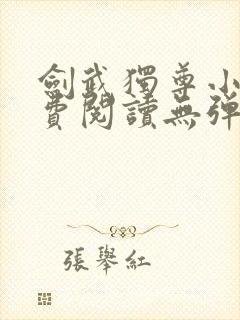 劍武獨尊小
費閱讀無彈
張舉紅